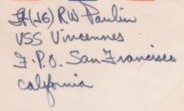 Lt(jG) R W Paulin
USS Vincennes
F.P.O. San Francisco
California